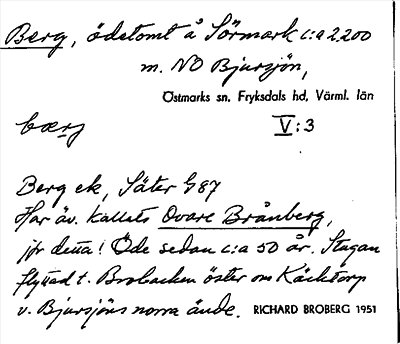 Berg, ödetomt å Sörmark c:a 2200
m. NO Bjursjön,
Östmarks sn. Fryksdals hd, Värml. län
bærj V:3
Berg ek, Säter G87
Har äv. kallats Ovare Brånberg,
jfr detta! Öde sedan c:a 50 år. Stugan
flyttad t. Brobacken öster om Käcktorp
v. Bjursjöns norra ände. RICHARD BROBERG 1951